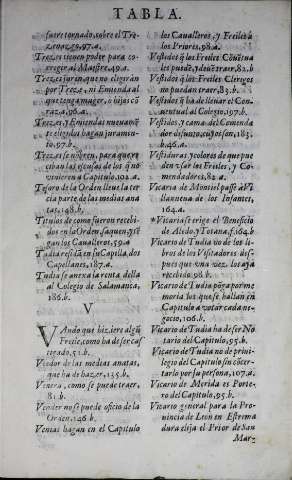 TABLA.
fuere tornado, sobre el Tre-
zenazgo, 97.a.
Trezes tienen poder para co-
rregir al Maestre, 49.a.
Trezes juren, que no eligirán
por Treze, ni Emienda al
que tenga muger, o hijos
96.a.
Trezes, y Emiendas
elegidos hagan juramen-
to, 97.b.
Trezes se nõbren, para que re-
ciban las escusas de los q̃ no
vinieren a Capitulo, 101.a.
Tesoro de la Orden lleue la ter-
cia parte de las medias ana-
tas, 148.b.
Titulos de como fueron recebi-
dos en la Orden saquen y si-
gan los Caualleros, 59.a
Tudia residã en su Capilla, dos
Capellanes, 187.a.
Tudia se anexa la renta della
al Colegio de Salamanca,
186.b.
V
VAndo que hiziere algũ
Freile, como ha de ser cas
tigado, 51.b.
Veedor de las medias anatas,
que ha de hazer, 135.b.
Venera, como se puede traer,
81.b.
Vender no se puede oficio de la
Orden, 146.b.
Venias hagan en el Capitulo
los Caualleros, y Freiles a
los Priores, 98.a.
Vestidos q̃ los Freiles Cõuētua
les puedẽ, y deuẽ traer, 82.b.
Vestidos q̃ los Freiles Clerigos
no puedan traer, 83.b.
Vestidos q̃ ha de lleuar el Con-
uentual al Colegio, 197.b.
Vestidos, y cama del Comenda
dor difunto, cuyos son, 183.
b. 46.a.
Vestiduras y colores de que pue
dan vsar los Freiles, y Co-
mendadores, 82.a.
Vicaria de Montiel passe a Vi-
llanueua de los Infantes,
164.a.
*Vicaria se erige el Beneficio
de Aledo, y Totana, f. 164.b
Vicario de Tudia no de los li-
bros de los Visitadores des-
pues que vna vez, los aya
recebido, 98.b.
Vicario de Tudia põga por me
moria los que se hallan en
Capitulo a votar cada ne-
gocio, 106.b.
Vicario de Tudia ha de ser No
tario del Capitulo, 95.b.
Vicario de Tudia no de priui-
legio del Capitulo sin cõcer-
tarlo por su persona, 107.a.
Vicario de Merida es Porte-
ro del Capitulo, 95.b.
Vicario general para la Pro-
uincia de Leon en Estrema
dura elija el Prior de San
Mar;